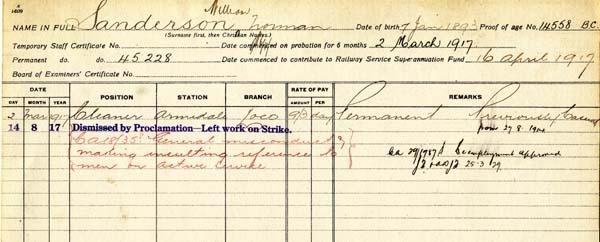 William
NAME IN FULL Sanderson Norman Date of birth 7 Jan 1893 Proof of age No. 14558 B.C.
(Surname first, then Christian Names.)
Temporary Staff Certificate No. Date commenced on probation for 6 months 2 March 1917
Permanent do. do. 45228 Date commenced to contribute to Railway Service Superannuation Fund 16 April 1917
Board of Examiners' Certificate No.
DATE POSITION STATION BRANCH RATE OF PAY REMARKS
DAY MONTH YEAR AMOUNT PER
2 Mar 917 Cleaner Armidale Loco 9/3 day Permanent Previously Casual
from 27 8
14 8 17 Dismissed by Proclamation—Left work on Strike.
General misconduct
making insulting reference to
men on active service
Reemployment approved
25.3.29